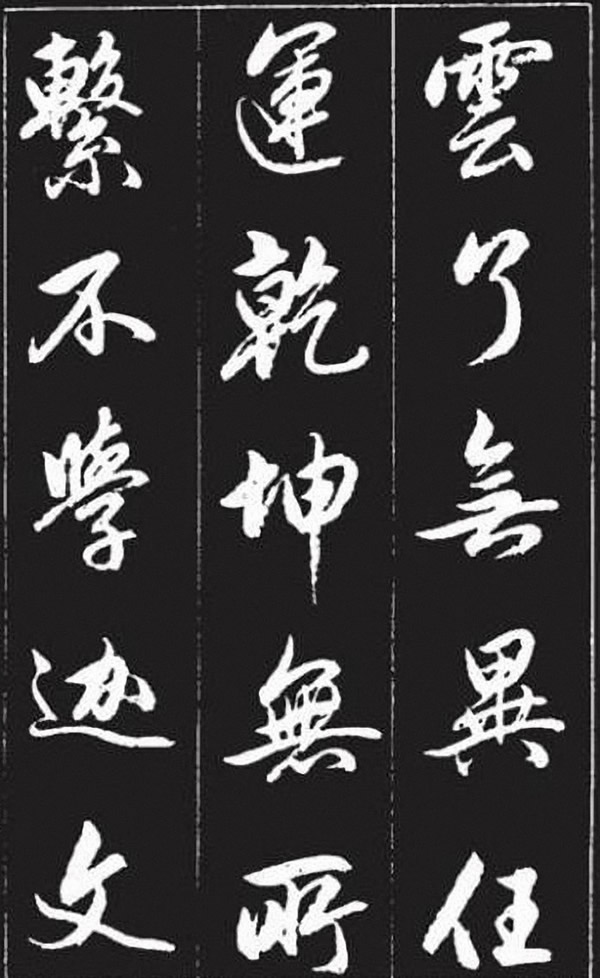 雲了無異任
運乾坤無所
繫不學文